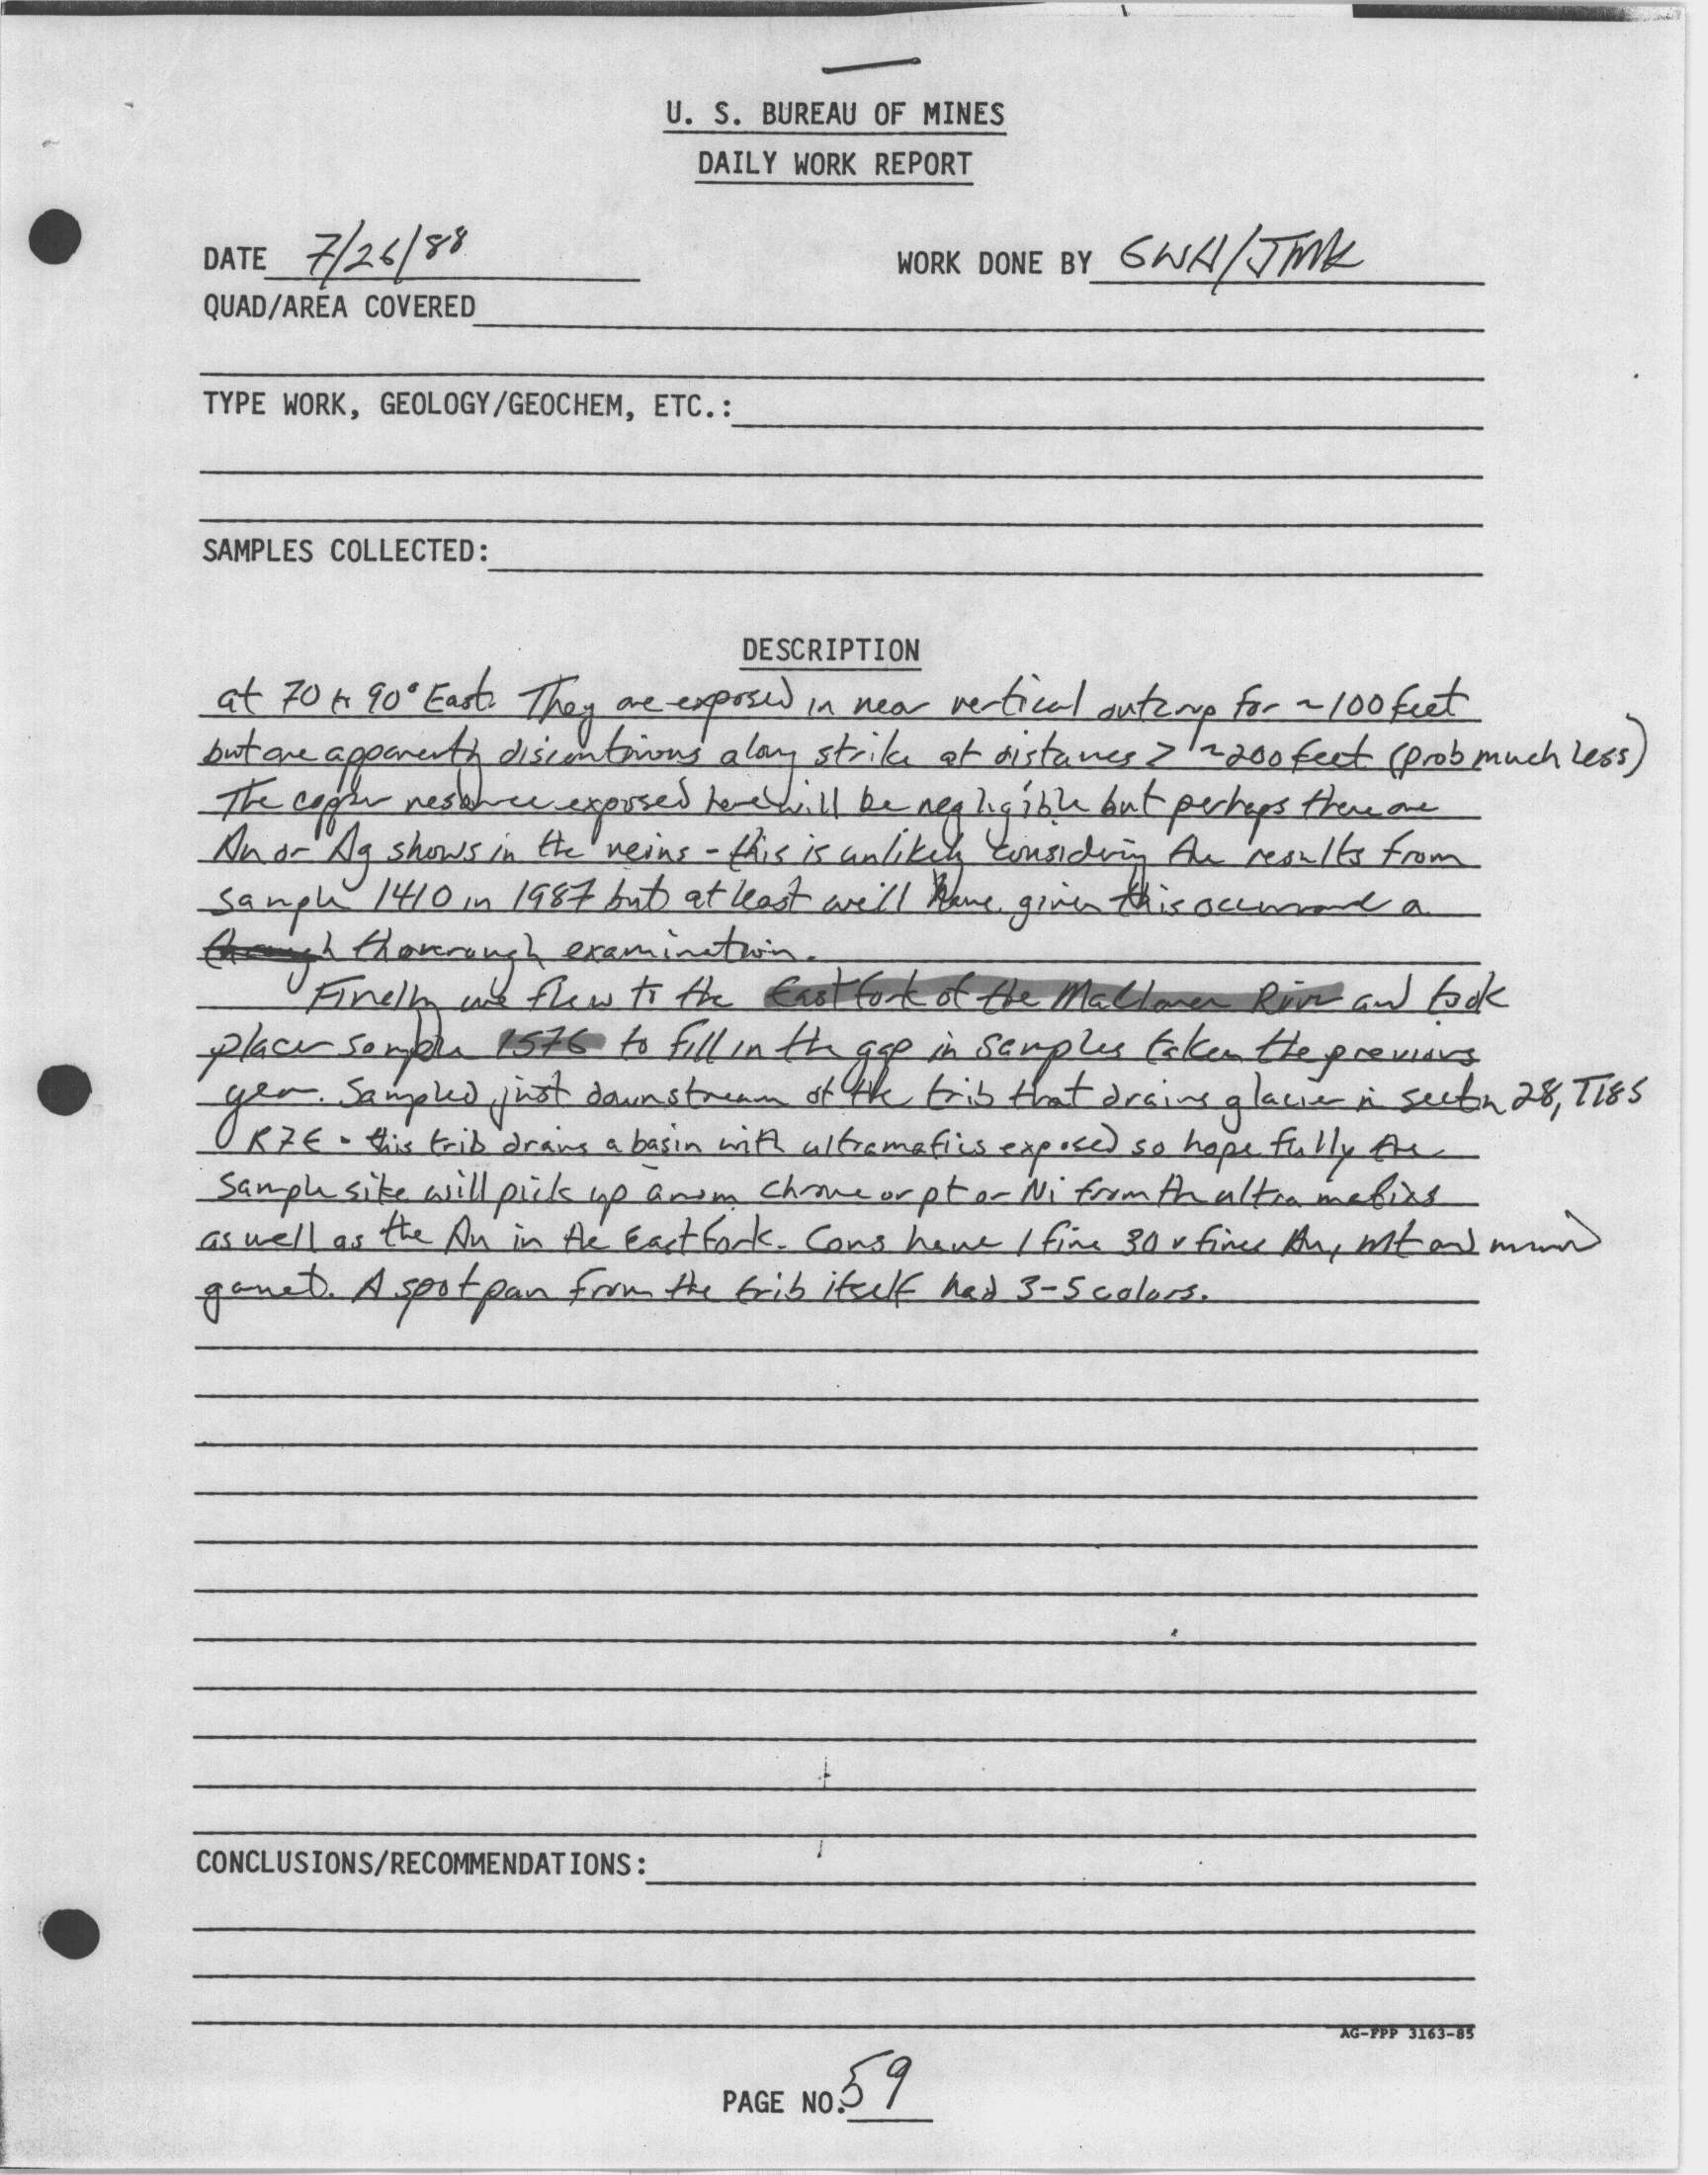 U. S. BUREAU OF MINES
DAILY WORK REPORT
DATE 7/26/88 WORK DONE BY GWH/JMK
QUAD/AREA COVERED
TYPE WORK, GEOLOGY/GEOCHEM, ETC.:
SAMPLES COLLECTED:
DESCRIPTION
at 70 to 90° East. They are exposed in near vertical outcrop for ~100 feet
but are apparently discontinuous along strike at distances > ~200 feet (prob much less)
The copper resource exposed here will be negligible but perhaps there are
Au or Ag shows in the veins - this is unlikely considering the results from
sample 1410 in 1987 but at least we'll have given this occurrence a
thorough examination.
Finally we flew to the East fork of the Maclaren River and took
placer sample 1576 to fill in the gap in samples taken the previous
year. Sampled just downstream of the trib that drains glacier in section 28, T18S
R7E - this trib drains a basin with ultramafics exposed so hopefully the
sample site will pick up anom chrome or pt or Ni from the ultramafics
as well as the Au in the East Fork. Cons have 1 fine 30 v fines Au, mt and minor
garnet. A spot pan from the trib itself had 3-5 colors.
CONCLUSIONS/RECOMMENDATIONS:
AG-FPP 3163-85
PAGE NO. 59